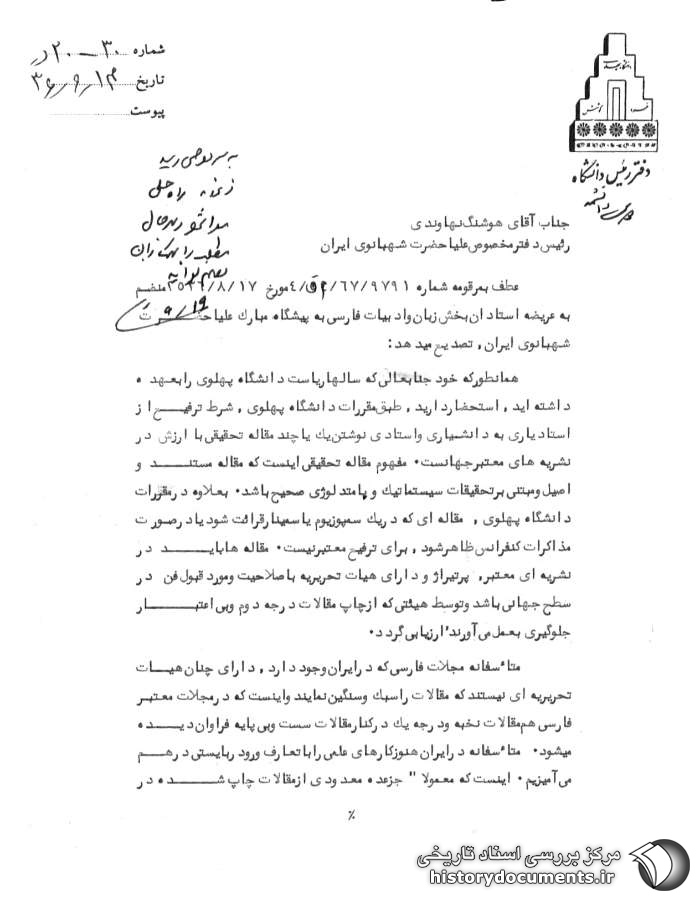 شماره ۳۰-۲۰ر
تاریخ ۳۶/۹/۱۳
پیوست
دفتر رئیس دانشگاه
جناب آقای هوشنگ نهاوندی
رئیس دفتر مخصوص علیاحضرت شهبانوی ایران
عطف بمرقومه شماره ۴/ق م/۶۷/۹۷۹۱ مورخ ۲۵۳۶/۸/۱۷ منضم
به عریضه استادان بخش زبان و ادبیات فارسی به پیشگاه مبارك علیاحضرت
شهبانوی ایران، تصدیع میدهد:
همانطور که خود جنابعالی که سالها ریاست دانشگاه پهلوی را بعهده
داشته اید، استحضار دارید، طبق مقررات دانشگاه پهلوی، شرط ترفیع از
استادیاری به دانشیاری و استادی نوشتن یك یا چند مقاله تحقیقی با ارزش در
نشریه های معتبر جهانست. مفهوم مقاله تحقیقی اینست که مقاله مستند و
اصیل و مبتنی بر تحقیقات سیستماتیك و با متدلوژی صحیح باشد. بعلاوه در مقررات
دانشگاه پهلوی، مقاله ای که در یك سمپوزیوم یا سمینار قرائت شود یا در صورت
مذاکرات کنفرانس ظاهر شود، برای ترفیع معتبر نیست. مقاله ها باید در
نشریه ای معتبر، پرتیراژ و دارای هیات تحریریه با صلاحیت و مورد قبول فن در
سطح جهانی باشد و توسط هیئتی که از چاپ مقالات درجه دوم و بی اعتبار
جلوگیری بعمل می آورند ارزیابی گردد.
متأسفانه مجلات فارسی که در ایران وجود دارد، دارای چنان هیات
تحریریه ای نیستند که مقالات را سبك و سنگین نمایند و اینست که در مجلات معتبر
فارسی هم مقالات نخبه و درجه یك در کنار مقالات سست و بی پایه فراوان دیده
میشود. متأسفانه در ایران هنوز کارهای علمی را با تعارف و رودربایستی در هم
می آمیزیم. اینست که معمولا" جز عده معدودی از مقالات چاپ شده در
٪
مرکز بررسی اسناد تاریخی
historydocuments.ir